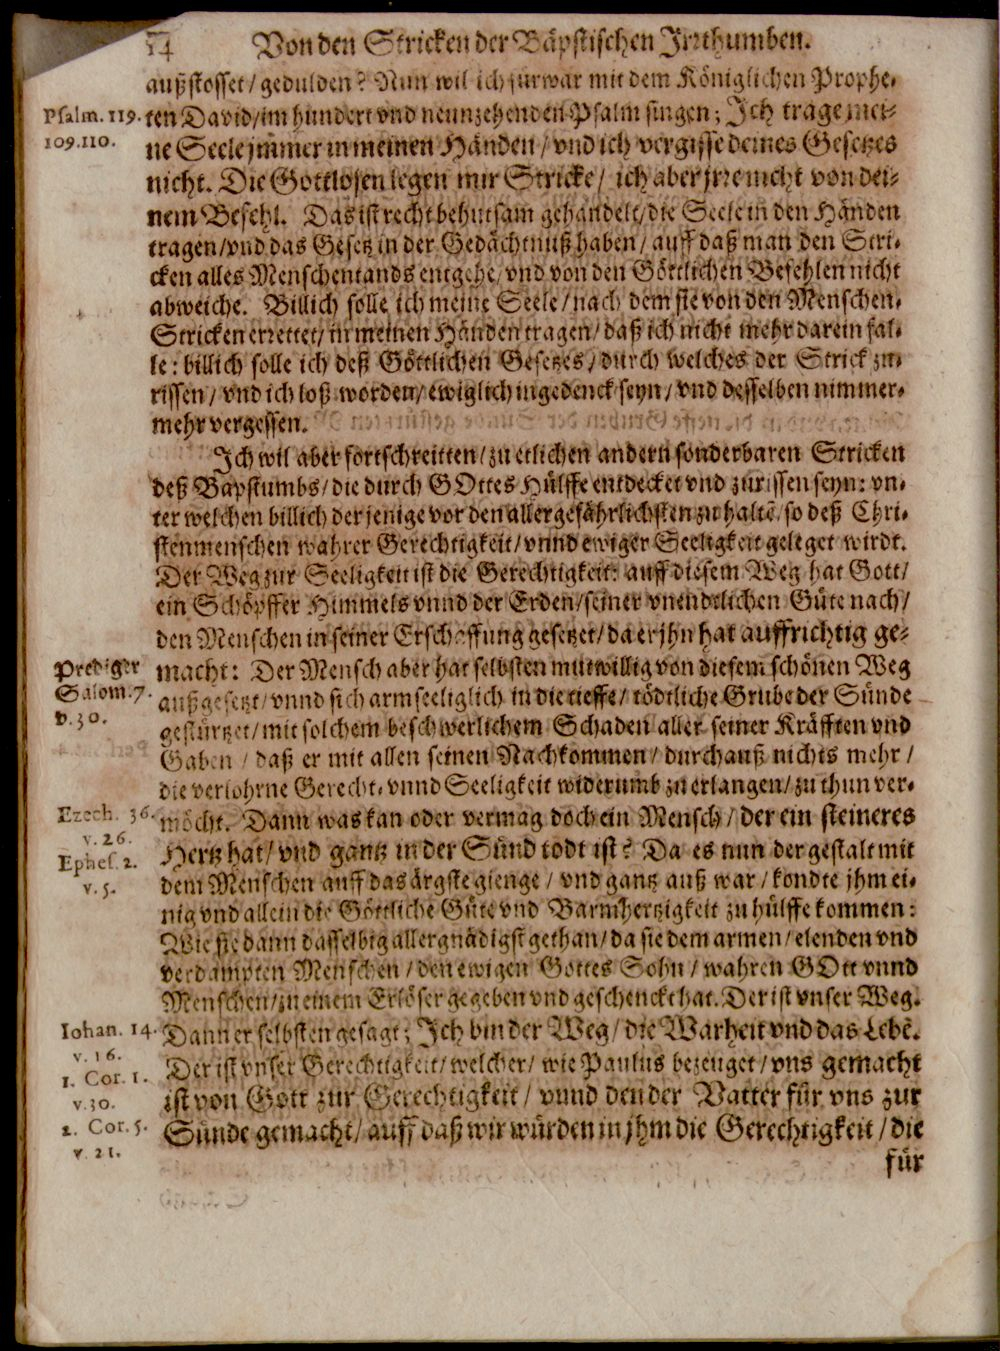 14 Von den Stricken der Bäpstischen Irrthumben.
außstosset / gedulden? Nun wil ich fürwar mit dem Königlichen Prophe-
Psalm. 119.
109.110.
ten David / im hundert vnd neunzehenden Psalm singen; Ich trage mei-
ne Seele jmmer in meinen Händen / vnd ich vergisse deines Gesetzes
nicht. Die Gottlosen legen mir Stricke / ich aber jrre nicht von dei-
nem Befehl. Das ist recht behutsam gehandelt / die Seele in den Händen
tragen / vnd das Gesetz in der Gedächtnuß haben / auff daß man den Stri-
cken alles Menschentands entgehe / vnd von den Göttlichen Befehlen nicht
abweiche. Billich solle ich meine Seele / nach dem sie von den Menschen-
Stricken errettet / in meinen Händen tragen / daß ich nicht mehr darein fal-
le: billich solle ich deß Göttlichen Gesetzes / durch welches der Strick zu-
rissen / vnd ich loß worden / ewiglich ingedenck seyn / vnd desselben nimmer-
mehr vergessen.
Ich wil aber fortschreitten / zu etlichen andern sonderbaren Stricken
deß Bapstumbs / die durch GOttes Hülffe entdecket vnd zurissen seyn: vn-
ter welchen billich der jenige vor den allergefährlichsten zu haltē / so deß Chri-
stenmenschen wahrer Gerechtigkeit / vnnd ewiger Seeligkeit geleget wirdt.
Der Weg zur Seeligkeit ist die Gerechtigkeit: auff diesem Weg hat Gott /
ein Schöpffer Himmels vnnd der Erden / seiner vnendtlichen Güte nach /
den Menschen in seiner Erschaffung gesetzet / da er jhn hat auffrichtig ge-
Prediger
Salom. 7.
v. 30.
macht: Der Mensch aber hat selbsten mutwillig von diesem schönen Weg
außgesetzt / vnnd sich armseeliglich in die tieffe / tödtliche Grube der Sünde
gestürtzet / mit solchem beschwerlichem Schaden aller seiner Kräfften vnd
Gaben / daß er mit allen seinen Nachkommen / durchauß nichts mehr /
die verlohrne Gerecht- vnnd Seeligkeit widerumb zu erlangen / zu thun ver-
Ezech. 36.
v. 26.
Ephes. 2.
v. 5.
möcht. Dann was kan oder vermag doch ein Mensch / der ein steineres
Hertz hat / vnd gantz in der Sünd todt ist? Da es nun der gestalt mit
dem Menschen auff das ärgste gienge / vnd gantz auß war / kondte jhm ei-
nig vnd allein die Göttliche Güte vnd Barmhertzigkeit zu hülffe kommen:
Wie sie dann dasselbig allergnädigst gethan / da sie dem armen / elenden vnd
verdampten Menschen / den ewigen Gottes Sohn / wahren GOtt vnnd
Menschen / zu einem Erlöser gegeben vnd geschenckt hat. Der ist vnser Weg.
Iohan. 14.
v. 16.
1. Cor. 1.
v. 30.
2. Cor. 5.
v. 21.
Dann er selbsten gesagt; Ich bin der Weg / die Warheit vnd das Lebē.
Der ist vnser Gerechtigkeit / welcher / wie Paulus bezeuget / vns gemacht
ist von Gott zur Gerechtigkeit / vnnd den der Vatter für vns zur
Sünde gemacht / auff daß wir würden in jhm die Gerechtigkeit / die
für